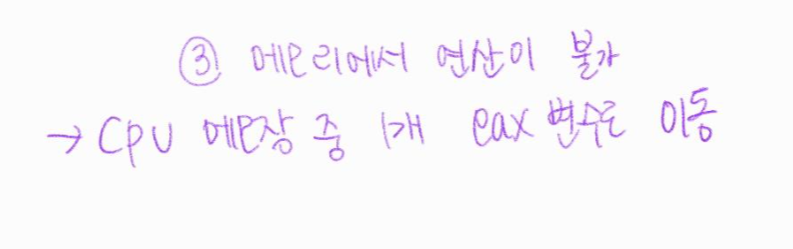 ③ 메모리에서 연산이 불가
→ CPU 메모장 중 1개 eax 변수로 이동